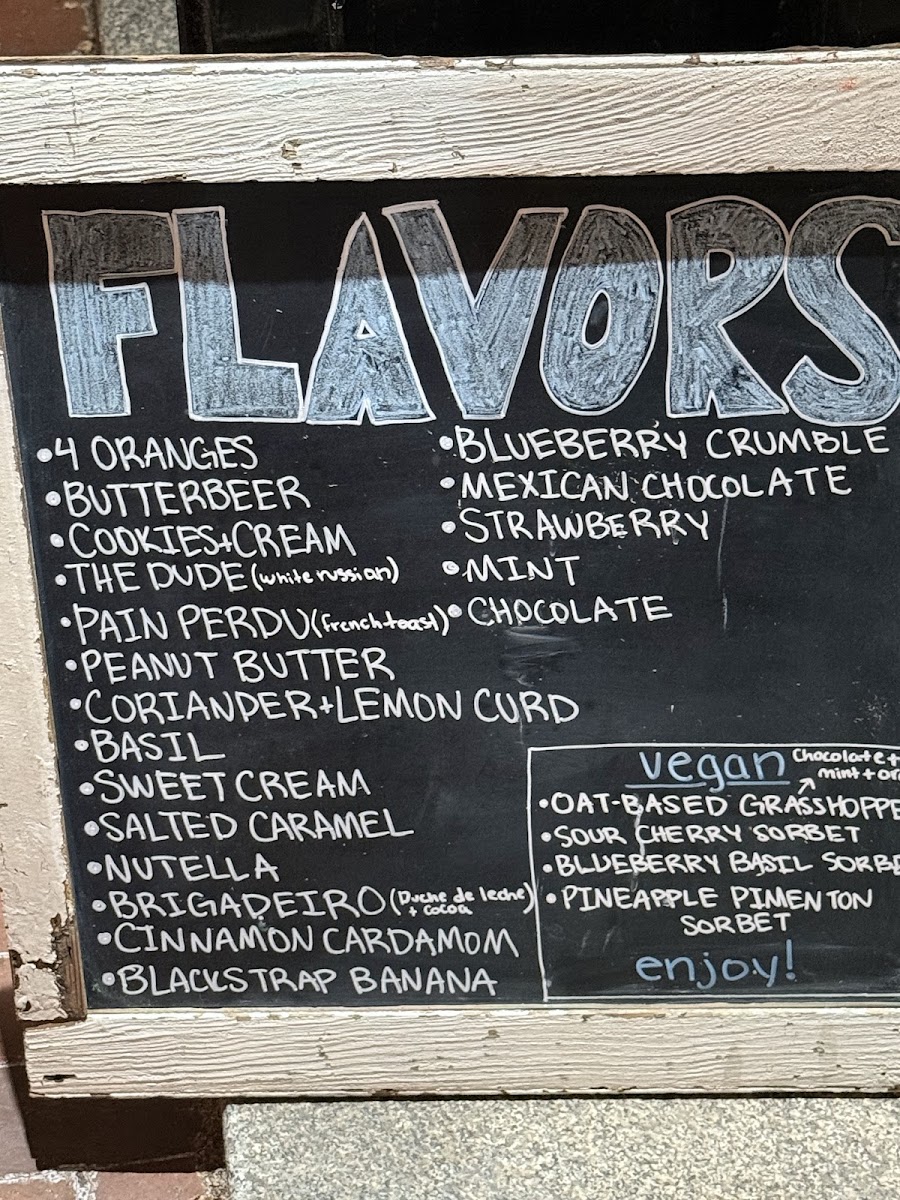 FLAVORS
•4 ORANGES
•BUTTERBEER
•COOKIES+CREAM
•THE DUDE (white russian)
•PAIN PERDU (french toast)
•PEANUT BUTTER
•CORIANDER+LEMON CURD
•BASIL
•SWEET CREAM
•SALTED CARAMEL
•NUTELLA
•BRIGADEIRO (Duche de leche
+ cocoa)
•CINNAMON CARDAMOM
•BLACKSTRAP BANANA
•BLUEBERRY CRUMBLE
•MEXICAN CHOCOLATE
•STRAWBERRY
•MINT
•CHOCOLATE
vegan
Chocolate +
mint +
•OAT-BASED GRASSHOPPE
•SOUR CHERRY SORBET
•BLUEBERRY BASIL SORBE
•PINEAPPLE PIMENTON
SORBET
enjoy!